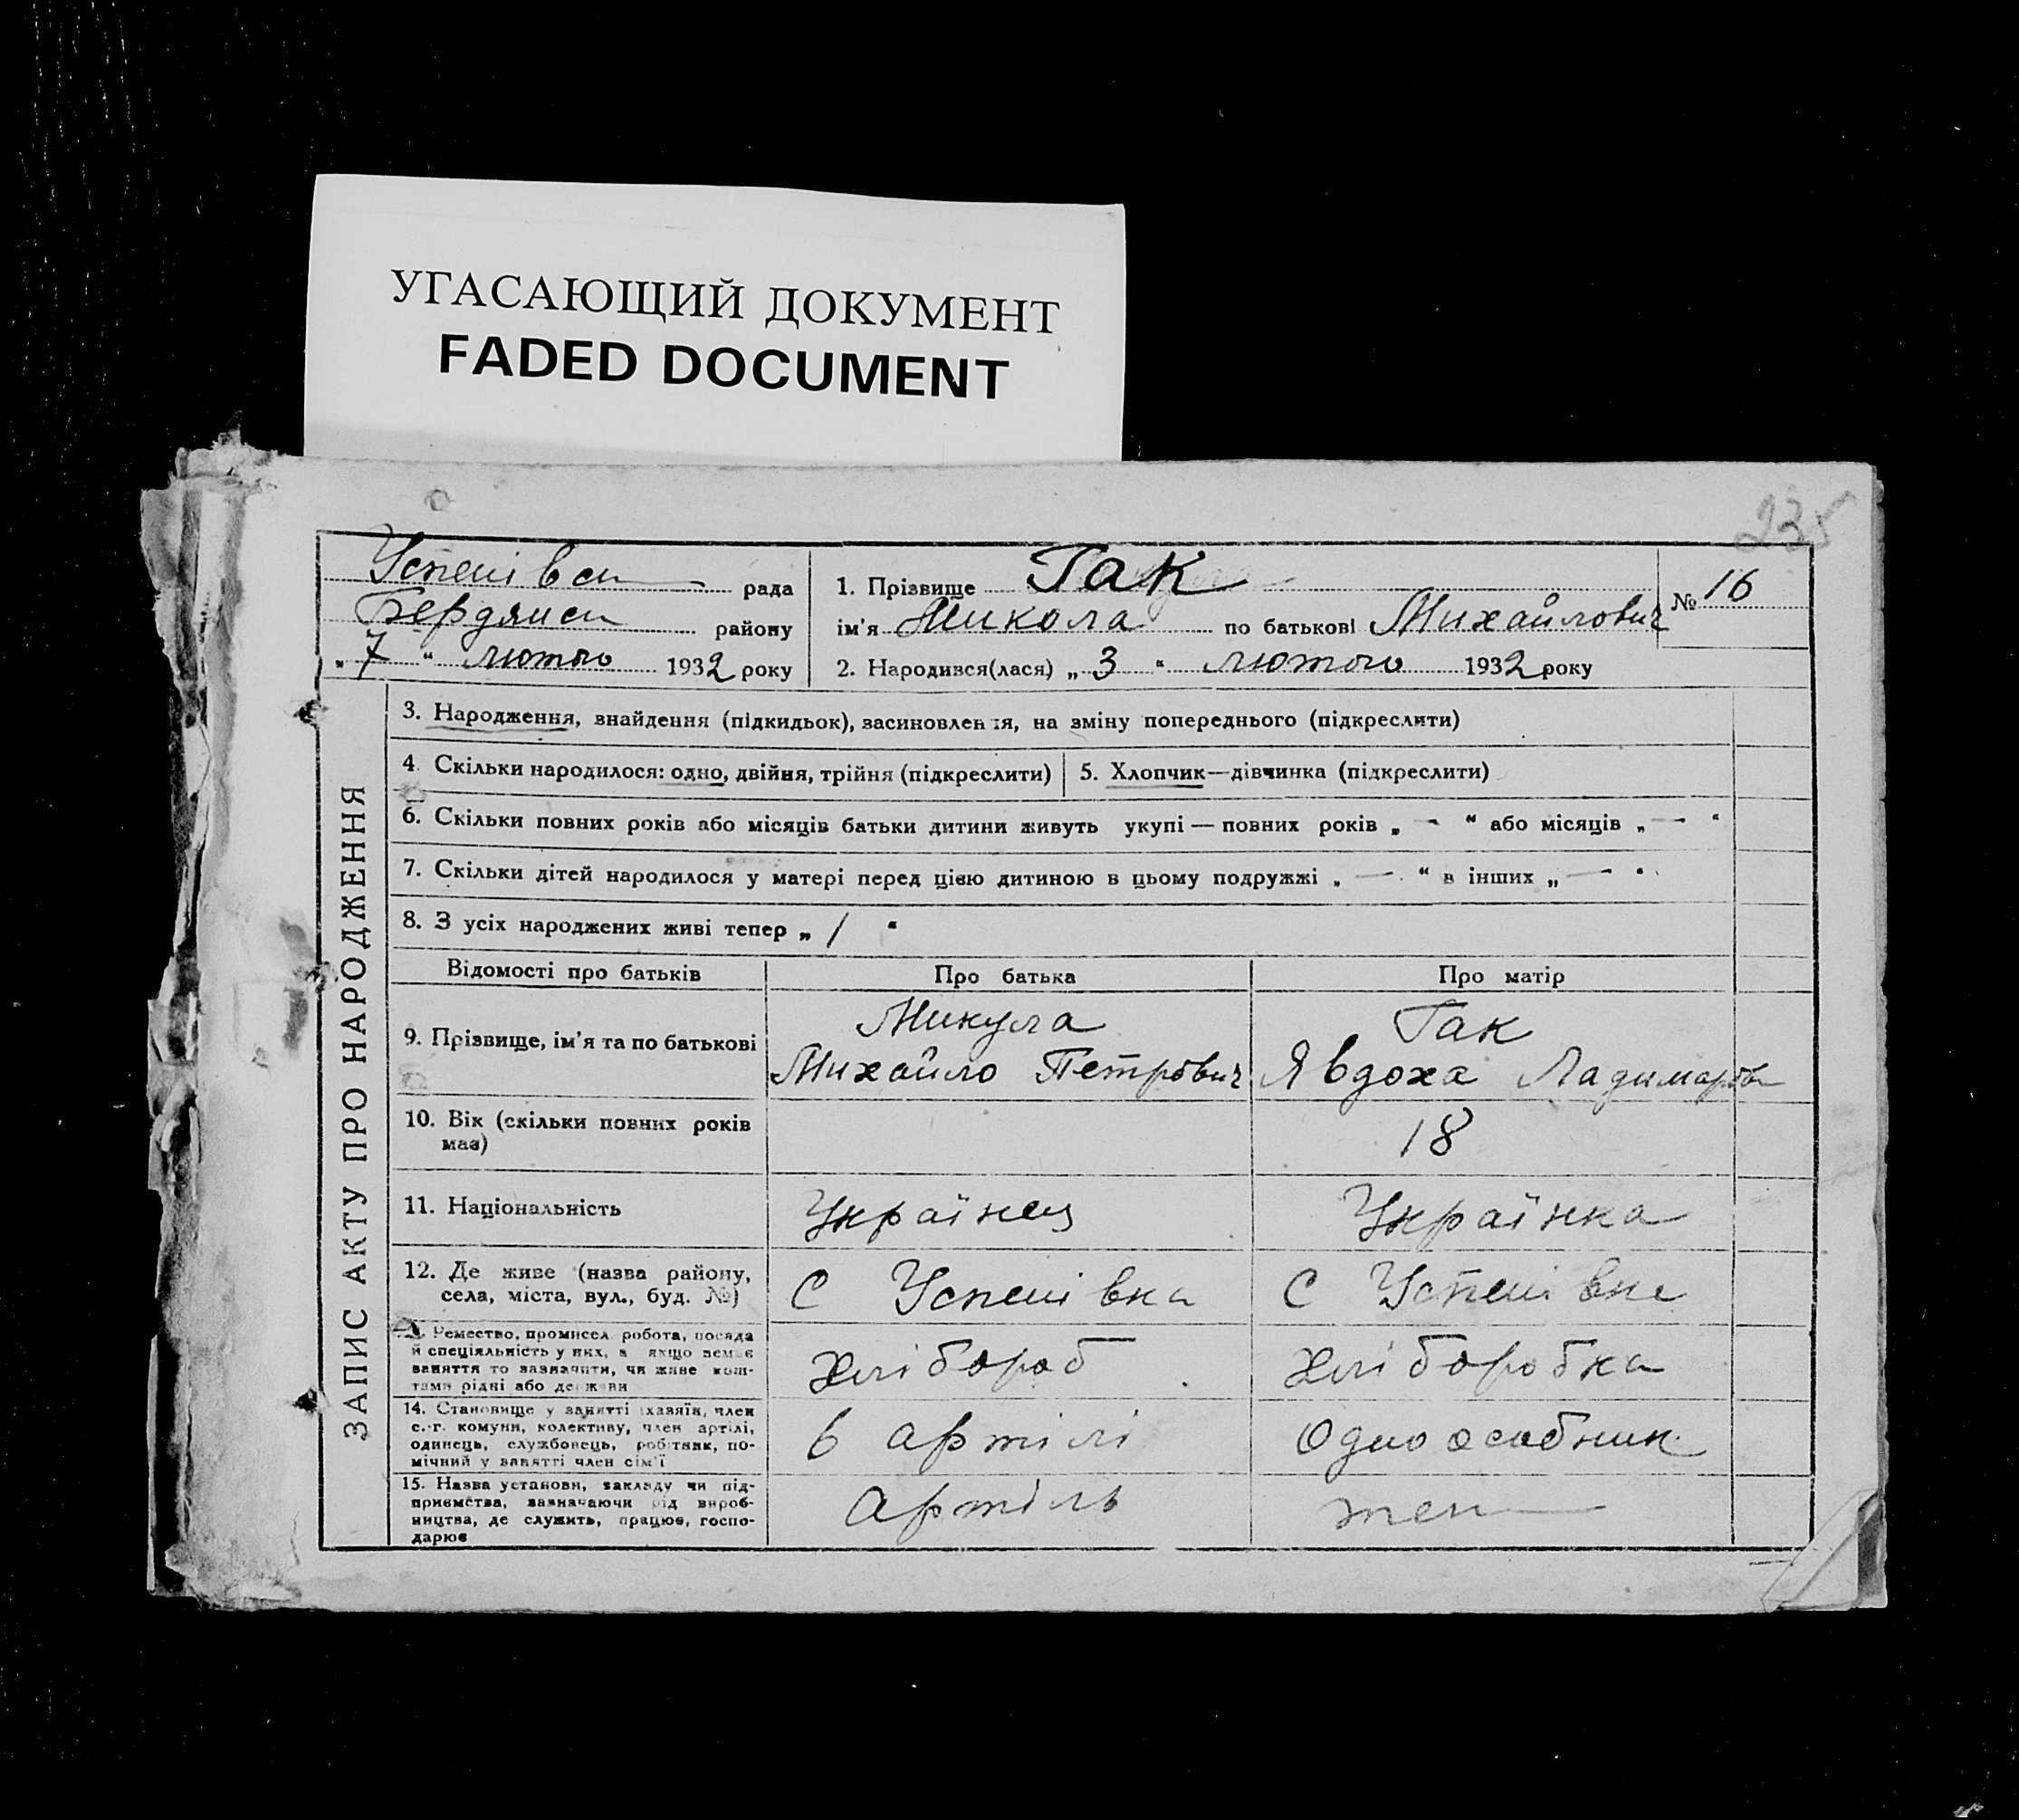 УГАСАЮЩИЙ ДОКУМЕНТ
FADED DOCUMENT
235
Успенівск рада
Бердянск району
„ 7 “ лютого 1932 року
1. Прізвище Гак
№ 16
ім'я Микола по батькові Михайлович
2. Народився(лася) „ 3 “ лютого 1932 року
ЗАПИС АКТУ ПРО НАРОДЖЕННЯ
3. Народження, знайдення (підкидьок), засиновлення, на зміну попереднього (підкреслити)
4. Скільки народилося: одно, двійня, трійня (підкреслити)
5. Хлопчик—дівчинка (підкреслити)
6. Скільки повних років або місяців батьки дитини живуть укупі — повних років „ — “ або місяців „ — “
7. Скільки дітей народилося у матері перед цією дитиною в цьому подружжі „ — “ в інших „ — “
8. З усіх народжених живі тепер „ 1 “
Відомості про батьків
Про батька
Про матір
9. Прізвище, ім'я та по батькові
Микула
Михайло Петрович
Гак
Явдоха
10. Вік (скільки повних років
має)
18
11. Національність
Українец
Українка
12. Де живе (назва району,
села, міста, вул., буд. №)
С Успенівка
С Успенівке
Ремество, промисел, робота, посада
й спеціяльність у них, а якщо немає
заняття то зазначити, чи живе кош-
тами рідні або держави
Хлібороб
Хліборобка
14. Становище у занятті (хазяїн, член
с.-г. комуни, колективу, член артілі,
одинець, службовець, робітник, по-
мічний у занятті член сім'ї
в артілі
Одноособник
15. Назва установи, закладу чи під-
приємства, зазначаючи рід вироб-
ництва, де служить, працює, госпо-
дарює
Артіль